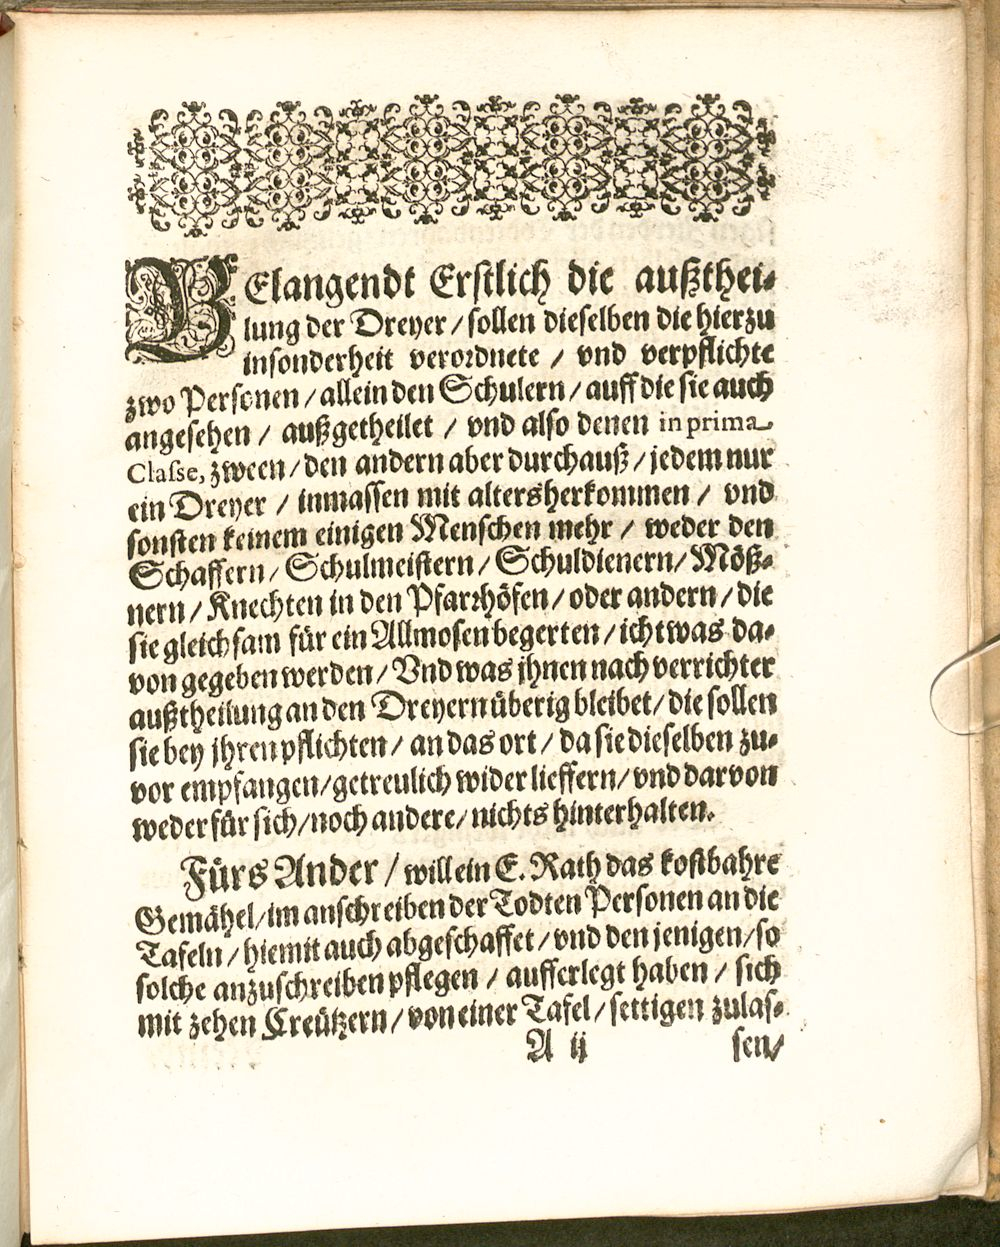 BElangendt Erstlich die außthei-
lung der Dreyer / sollen dieselben die hierzu
insonderheit verordnete / vnd verpflichte
zwo Personen / allein den Schulern / auff die sie auch
angesehen / außgetheilet / vnd also denen in prima
Classe, zween / den andern aber durchauß / jedem nur
ein Dreyer / inmassen mit altersherkommen / vnd
sonsten keinem einigen Menschen mehr / weder den
Schaffern / Schulmeistern / Schuldienern / Mößz-
nern / Knechten in den Pfarrhöfen / oder andern / die
sie gleichsam für ein Allmosen begerten / ichtwas da-
von gegeben werden / Vnd was jhnen nach verrichter
außtheilung an den Dreyern überig bleibet / die sollen
sie bey jhren pflichten / an das ort / da sie dieselben zu-
vor empfangen / getreulich wider lieffern / vnd darvon
weder für sich / noch andere / nichts hinterhalten.
Fürs Ander / will ein E. Rath das kostbahre
Gemähel / im anschreiben der Todten Personen an die
Tafeln / hiemit auch abgeschaffet / vnd den jenigen / so
solche anzuschreiben pflegen / aufferlegt haben / sich
mit zehen Creützern / von einer Tafel / settigen zulas-
A ij sen /